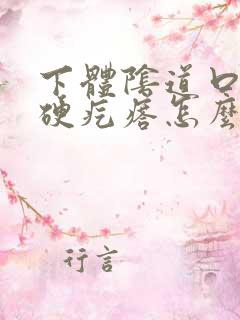 下體陰道口
硬疙瘩怎麼
行言